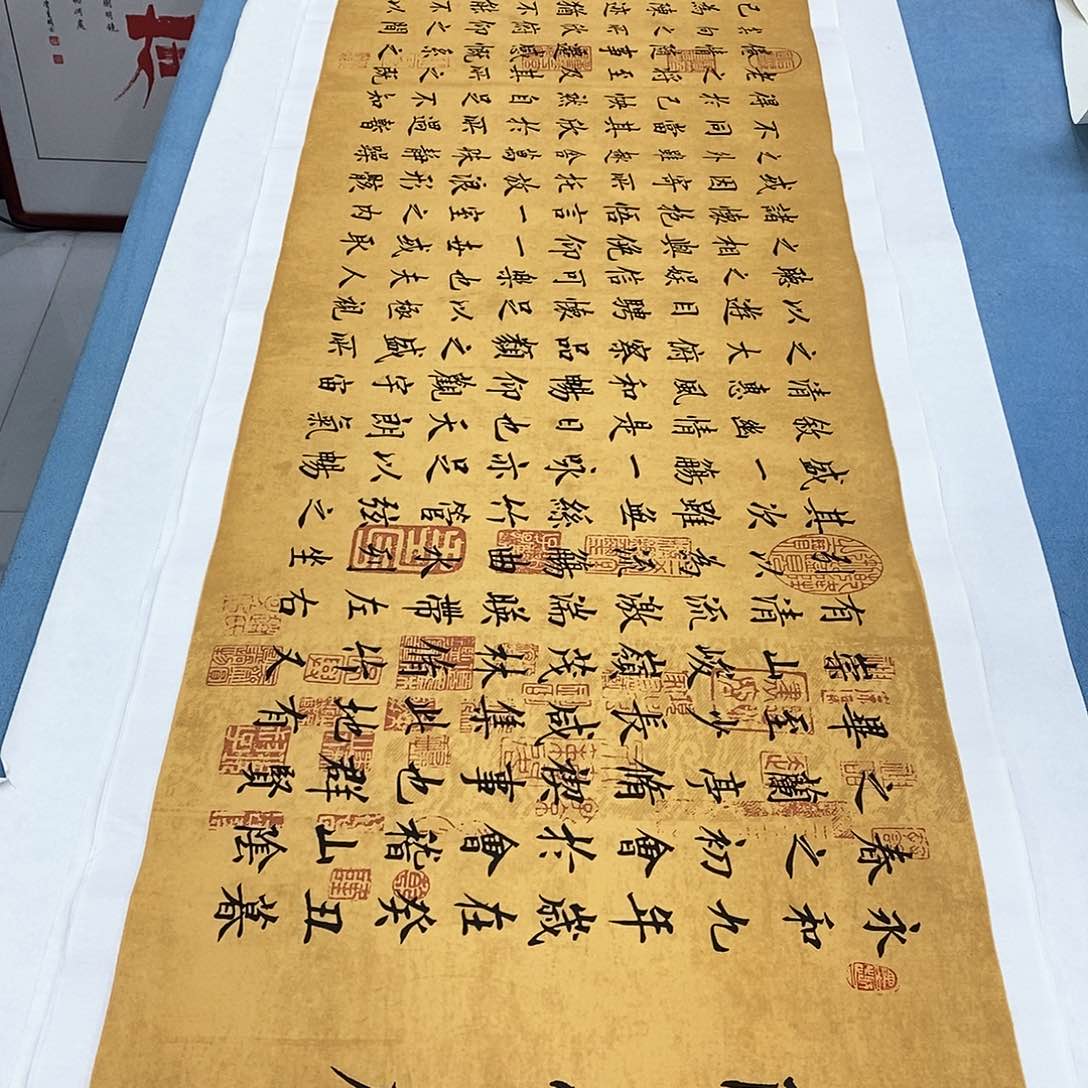 永和九年歲在癸丑暮
春之初會於會稽山陰
之蘭亭脩禊事也群賢
畢至少長咸集此地有
崇山峻嶺茂林脩竹又
有清流激湍暎帶左右
引以為流觴曲水列坐
其次雖無絲竹管弦之
盛一觴一詠亦足以暢
敘幽情是日也天朗氣
清惠風和暢仰觀宇宙
之大俯察品類之盛所
以遊目騁懷足以極視
聽之娛信可樂也夫人
之相與俛仰一世或取
諸懷抱悟言一室之內
或因寄所托放浪形骸
之外雖趣舍萬殊靜躁
不同當其欣於所遇暫
得於己快然自足不知
老之將至及其所之既
倦情隨事遷感慨係之
矣向之所欣俛仰之間
已為陳迹猶不能不以